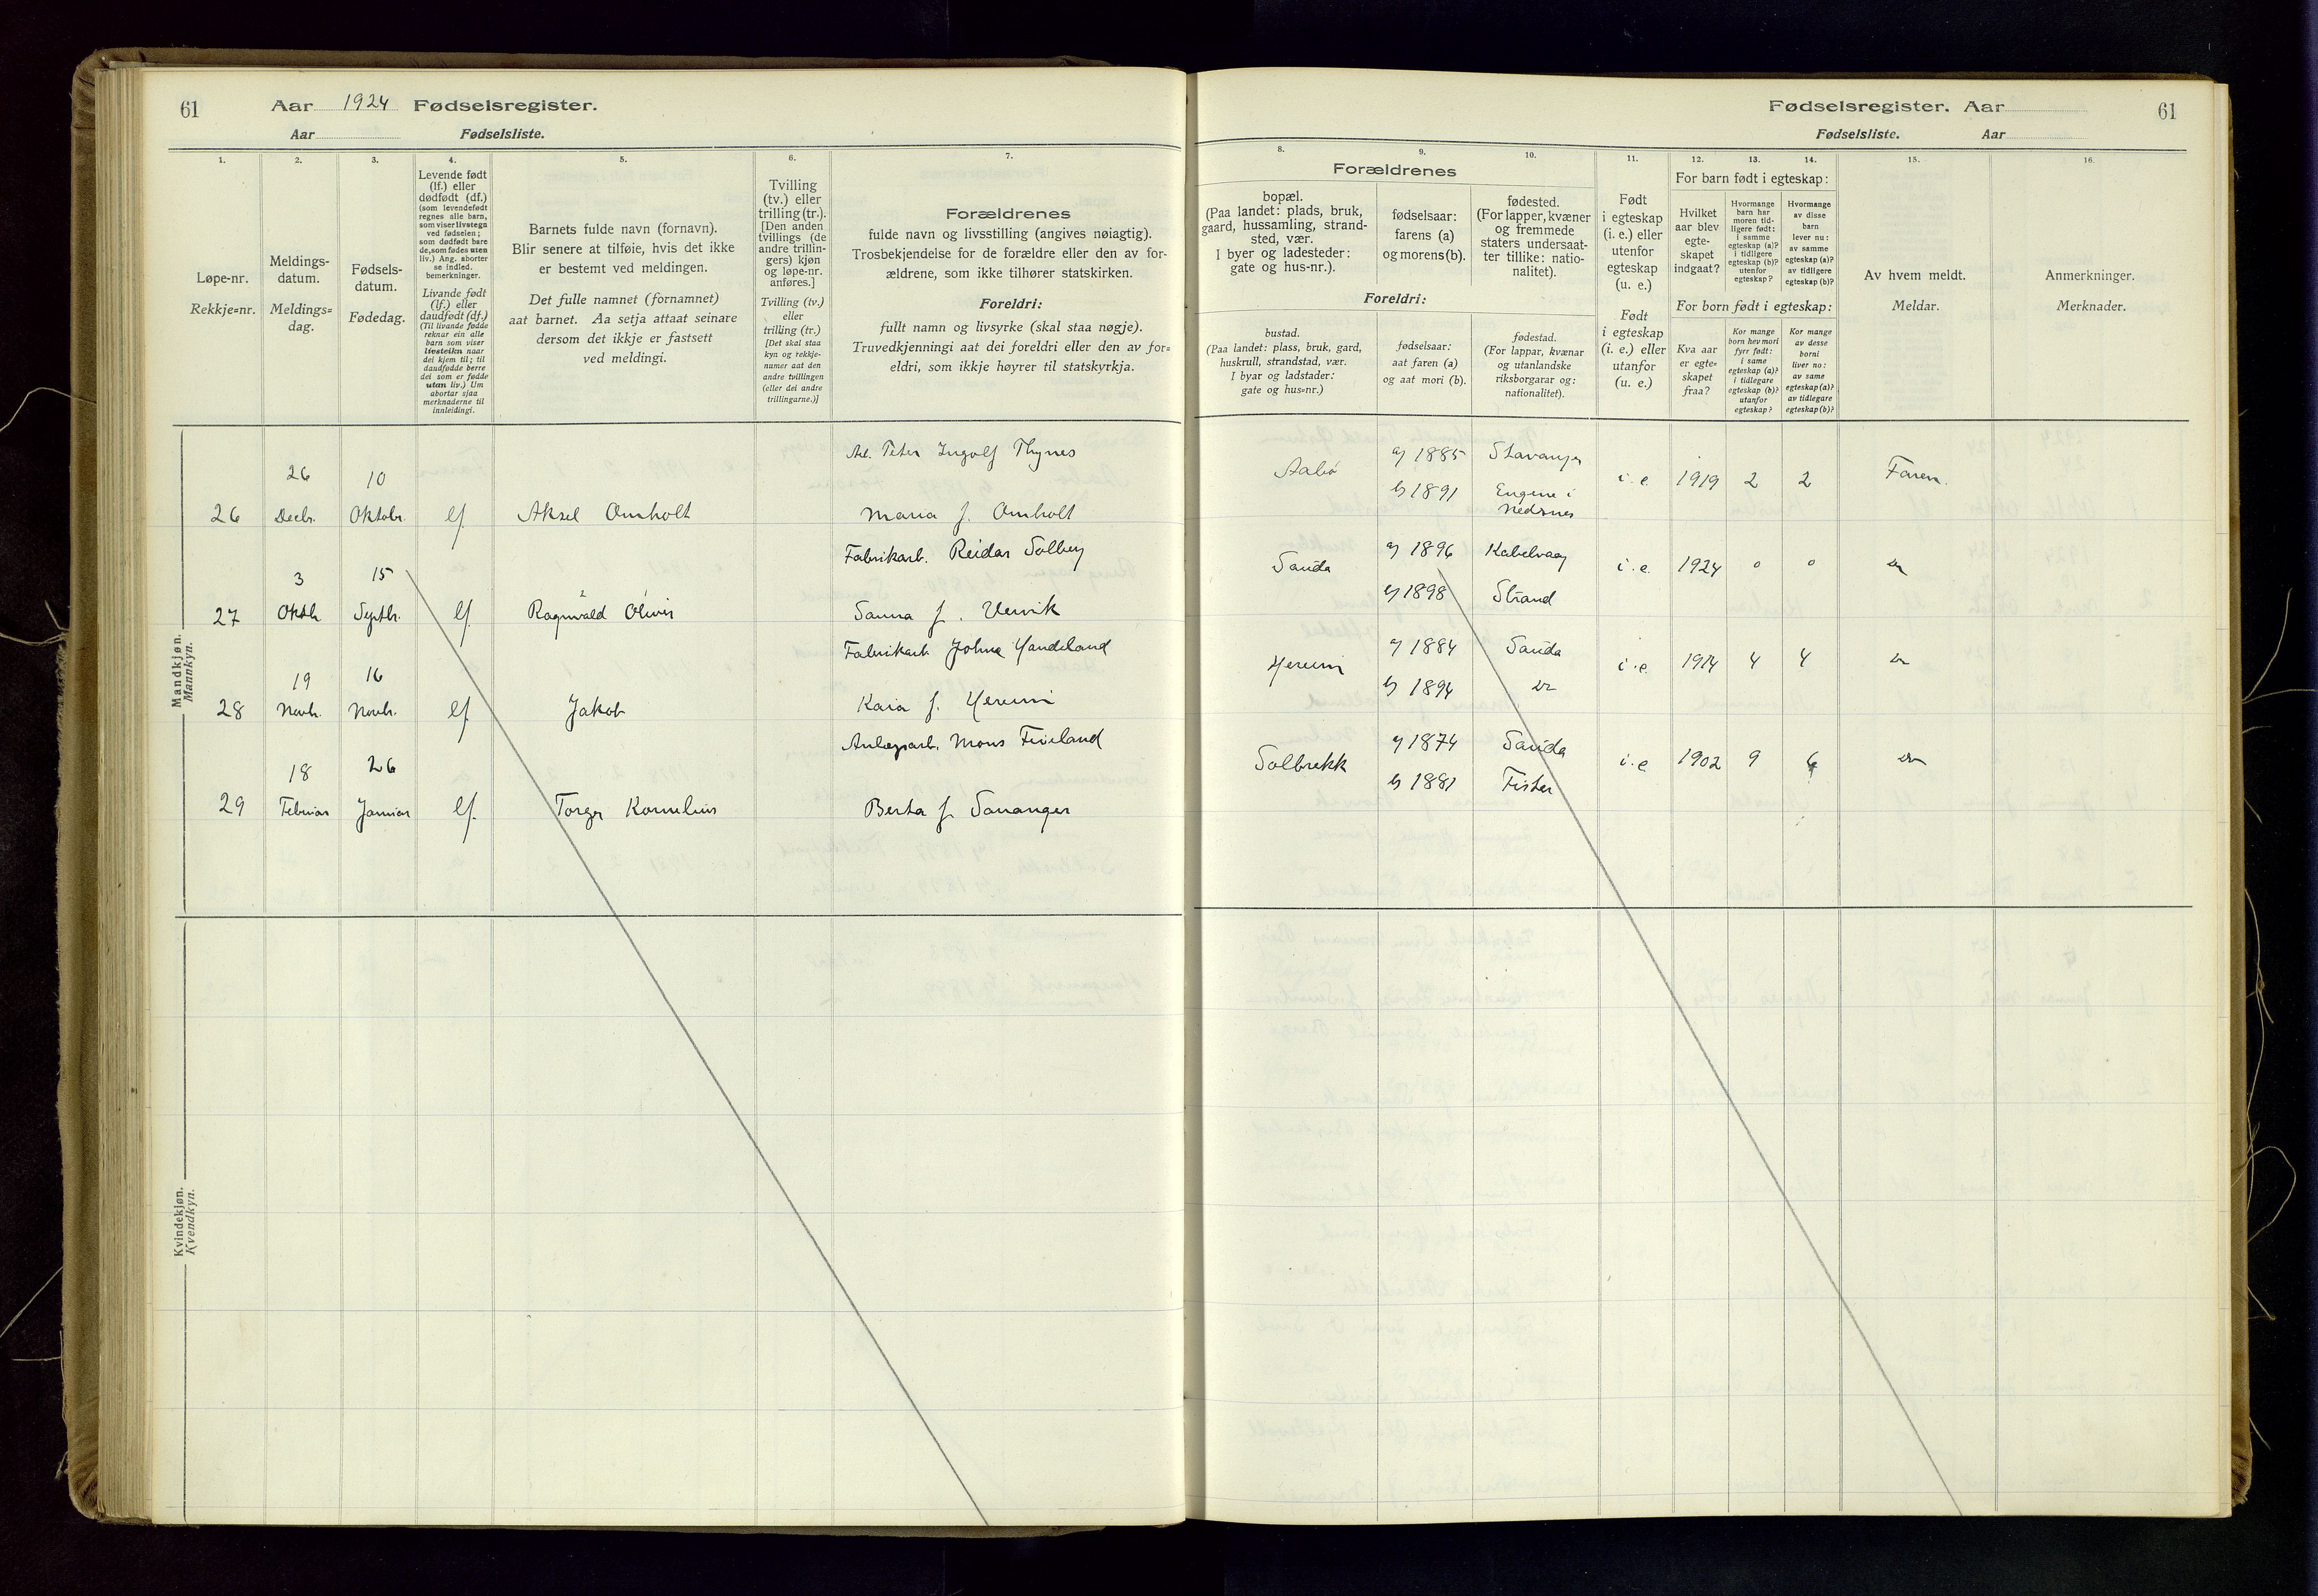 61
Aar 1924 Fødselsregister.
Aar Fødselsliste.
Fødselsregister. Aar
61
Fødselsliste. Aar
1.
2.
3.
4.
5.
6.
7.
8.
9.
10.
11.
12.
13.
14.
15.
16.
Løpe-nr.
Rekkje=nr.
Meldings-
datum.
Meldings=
dag.
Fødsels-
datum.
Fødedag.
Levende født
(lf.) eller
dødfødt (df.)
(som levendefødt
regnes alle barn,
som viser livstegn
ved fødselen;
som dødfødt bare
de, som fødes uten
liv.) Ang. aborter
se indled.
bemerkninger.
Livande født
(lf.) eller
daudfødt (df.)
(Til livande fødde
reknar ein alle
barn som viser
livsteikn naar
dei kjem til; til
daudfødde berre
dei som er fødde
utan liv.) Um
abortar sjaa
merknaderne til
innleidingi.
Barnets fulde navn (fornavn).
Blir senere at tilføie, hvis det ikke
er bestemt ved meldingen.
Det fulle namnet (fornamnet)
aat barnet. Aa setja attaat seinare
dersom det ikkje er fastsett
ved meldingi.
Tvilling
(tv.) eller
trilling (tr.).
[Den anden
tvillings (de
andre trillin-
gers) kjøn
og løpe-nr.
anføres.]
Tvilling (tv.)
eller
trilling (tr.)
[Det skal staa
kyn og rekkje-
numer aat den
andre tvillingen
(eller dei andre
trillingarne.)]
Forældrenes
fulde navn og livsstilling (angives nøiagtig).
Trosbekjendelse for de forældre eller den av for-
ældrene, som ikke tilhører statskirken.
Foreldri:
fullt namn og livsyrke (skal staa nøgje).
Truvedkjenningi aat dei foreldri eller den av for=
eldri, som ikkje høyrer til statskyrkja.
Forældrenes
bopæl.
(Paa landet: plads, bruk,
gaard, hussamling, strand-
sted, vær.
I byer og ladesteder:
gate og hus-nr.).
fødselsaar:
farens (a)
og morens (b).
fødested.
(For lapper, kvæner
og fremmede
staters undersaat-
ter tillike: natio-
nalitet).
Foreldri:
bustad.
(Paa landet: plass, bruk, gard,
huskrull, strandstad, vær.
I byar og ladstader:
gate og hus=nr.)
fødselsaar:
aat faren (a)
og aat mori (b).
fødestad.
(For lappar, kvænar
og utanlandske
riksborgarar og:
nationalitet).
Født
i egteskap
(i. e.) eller
utenfor
egteskap
(u. e.)
Født
i egteskap
(i. e.) eller
utanfor
(u. e.)
For barn født i egteskap:
Hvilket
aar blev
egte-
skapet
indgaat?
Hvormange
barn har
moren tid-
ligere født:
i samme
egteskap (a)?
i tidligere
egteskap (b)?
utenfor
egteskap?
Hvormange
av disse
barn
lever nu:
av samme
egteskap (a)?
av tidligere
egteskap (b)?
For born født i egteskap:
Kva aar
er egte=
skapet
fraa?
Kor mange
born hev mori
fyrr født:
i same
egteskap (a)?
i tidlegare
egteskap (b)?
utanfor
egteskap?
Kor mange
av desse
borni
liver no:
av same
egteskap (a)?
av tidlegare
egteskap (b)?
Av hvem meldt.
Meldar.
Anmerkninger.
Merknader.
Mandkjøn.
Mannkyn.
Peter Ingolf Thynes
26 10 Aabø a) 1885 Stavanger i. e. 1919 2 2 Faren.
b) 1891 Engene i
Nedsnes
26 Decbr. Oktobr. lf. Aksel Omholt Maria f. Omholt
Fabrikarb. Reidar Solberg
3 15 Sauda a) 1896 Kabelvaag i. e. 1924 0 0
b) 1898 Strand
27 Oktbr. Septbr. lf. Ragnvald Olivir Sanna f.
Fabrikarb. Johne Handeland
19 16 a) 1884 Sauda i. e. 1914 4 4
b) 1894
28 Novbr. Novbr. lf. Jakob Kaia f.
Anlegsarb. Mons
18 26 Solbrekk a) 1874 Sauda i. e. 1902 9 6
b) 1881 Fister
29 Februar Januar lf. Torger Kornelius Berta f.
Kvindekjøn.
Kvendkyn.